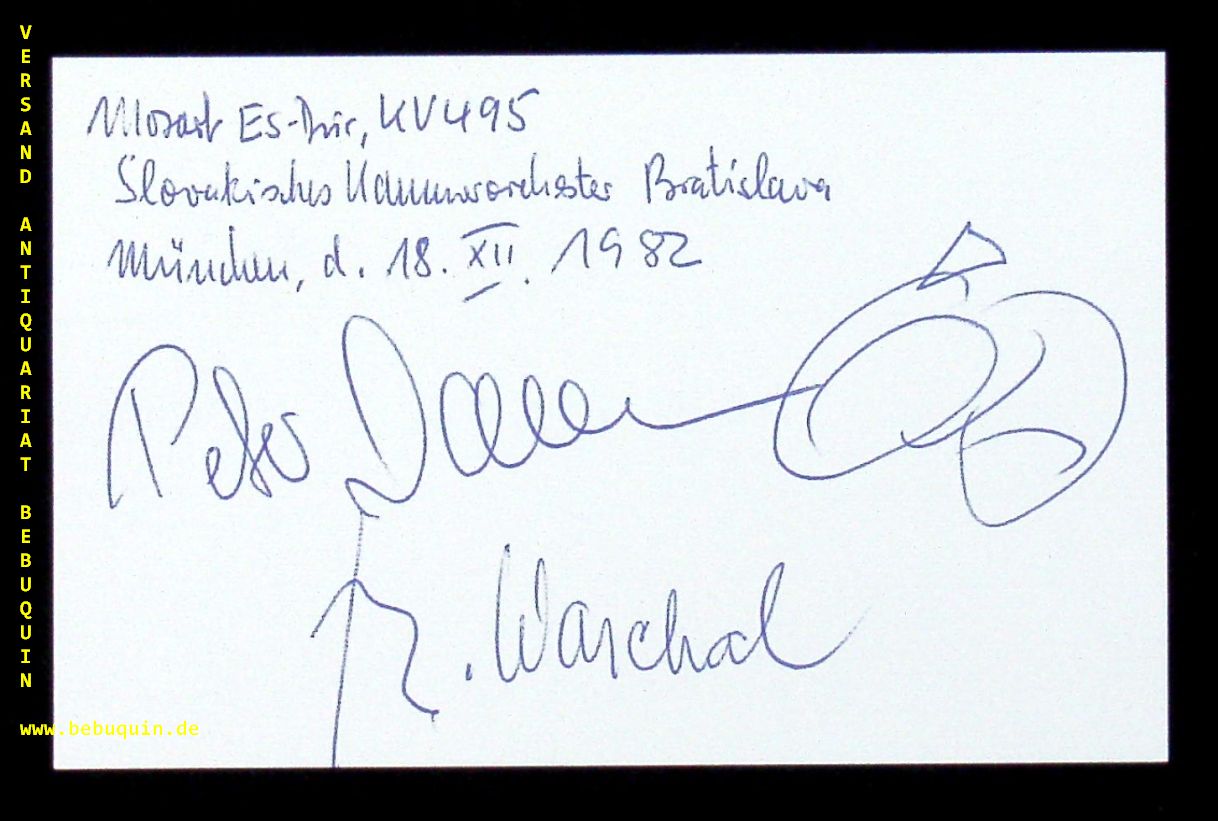 VERSAND ANTIQUARIAT BEBUQUIN
www.bebuquin.de
Mozart Es-Dur, KV495
Slovakisches Kammerorchester Bratislava
München, d. 18. XII. 1982
Peter Damm
B. Warchal